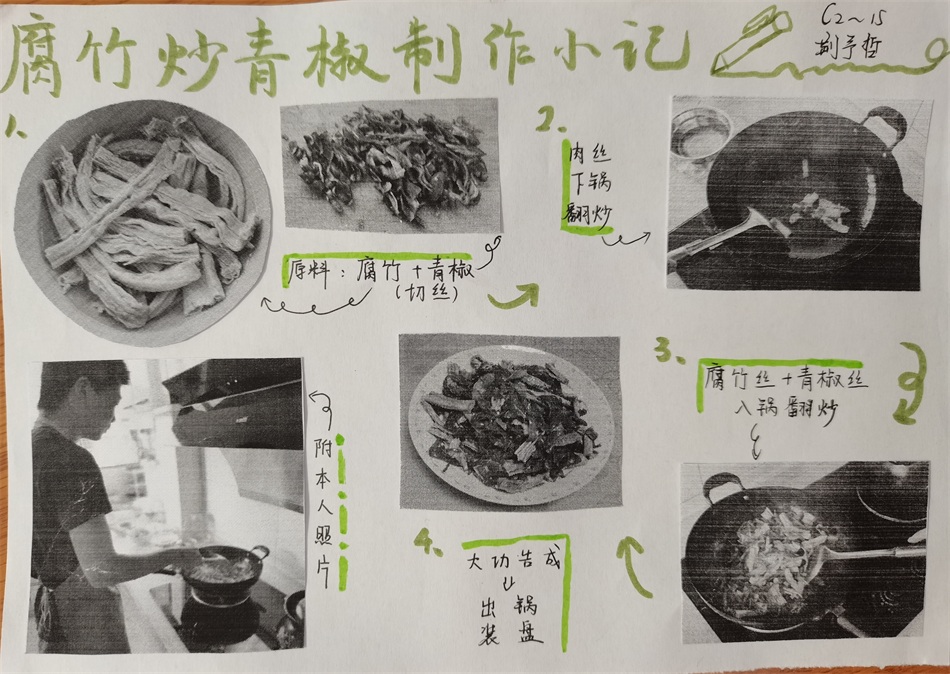 腐竹炒青椒制作小记
C2~15
荆予哲
1.
原料：腐竹+青椒
(切丝)
2.
肉丝
下锅
翻炒
3.
腐竹丝+青椒丝
入锅翻炒
4.
大功告成
出锅
装盘
附本人照片